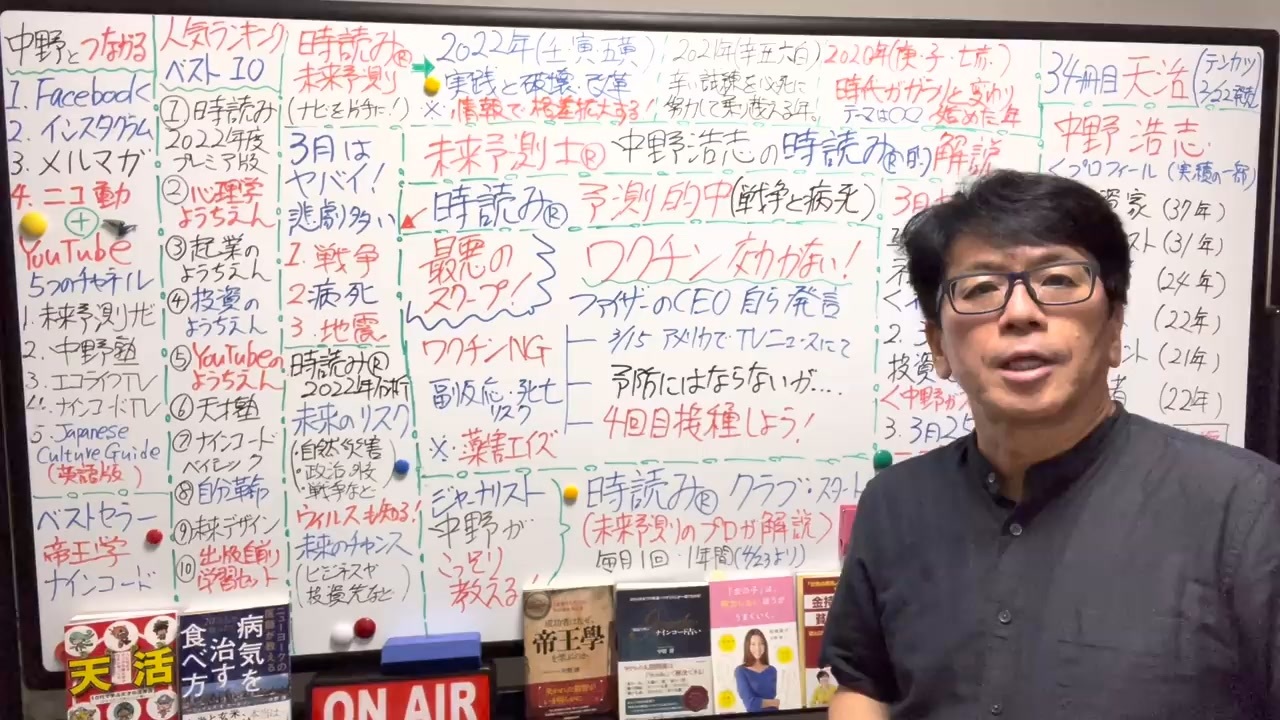 中野とつながる
1. Facebook
2. インスタグラム
3. メルマガ
4. ニコ動
+
YouTube
5つのチャネル
1. 未来予測ナビ
2. 中野塾
3. エコライフTV
4. ナインコードTV
5. Japanese
Culture Guide
(英語版)
ベストセラー
帝王学
ナインコード
人気ランキング
ベスト10
①時読み
2022年度
プレミア版
②心理学
ようちえん
③起業の
ようちえん
④投資の
ようちえん
⑤YouTubeの
ようちえん
⑥天才塾
⑦ナインコード
ベイシック
⑧自分革命
⑨未来デザイン
⑩出版自前り
学習セット
時読み®
未来予測
(ナビを片手に!)
3月は
ヤバイ!
悲劇多い
1. 戦争
2. 病死
3. 地震
時読み®
2022年分析
未来のリスク
・自然災害
・政治・外交
・戦争など
ウィルスも知る!
未来のチャンス
(ビジネスや
投資先など)
2022年(壬・寅・五黄)
実践と破壊・改革
※情報で格差拡大する!
2021年(辛丑六白)
辛い試練を必死に
努力して乗り越える年!
2020年(庚・子・七赤・)
時代がガラリと変わり
テマは〇〇 始めた年
34冊目 天活 (テンカツ)
中野 浩志
<プロフィール(実績の一部)
資家 (37年)
スト (31年)
(24年)
(22年)
ント (21年)
者 (22年)
未来予測士® 中野浩志の時読み®的 解説
時読み® 予測的中(戦争と病死)
最悪の
スクープ!
ワクチン効かがない!
ファイザーのCEO 自ら発言
3/15 アメリカで TVニュースにて
予防にはならないが...
4回目接種しよう!
ワクチンNG
副反応・死亡
リスク
※・薬害エイズ
ジャーナリスト
中野が
こっそり
教える!
時読み® クラブ・スタート
(未来予測のプロが解説)
毎月1回・1年間(4/23より)
3月
2. 3
投資
<中野が
3. 3月25
天活
ニューヨークの
医師が教える
病気を
治す
食べ方
ON AIR
成功者はなぜ、
帝王學
を学ぶのか
中野 博
ナインコード占い
中野 博
「女の子」は、
うまくいく
金持